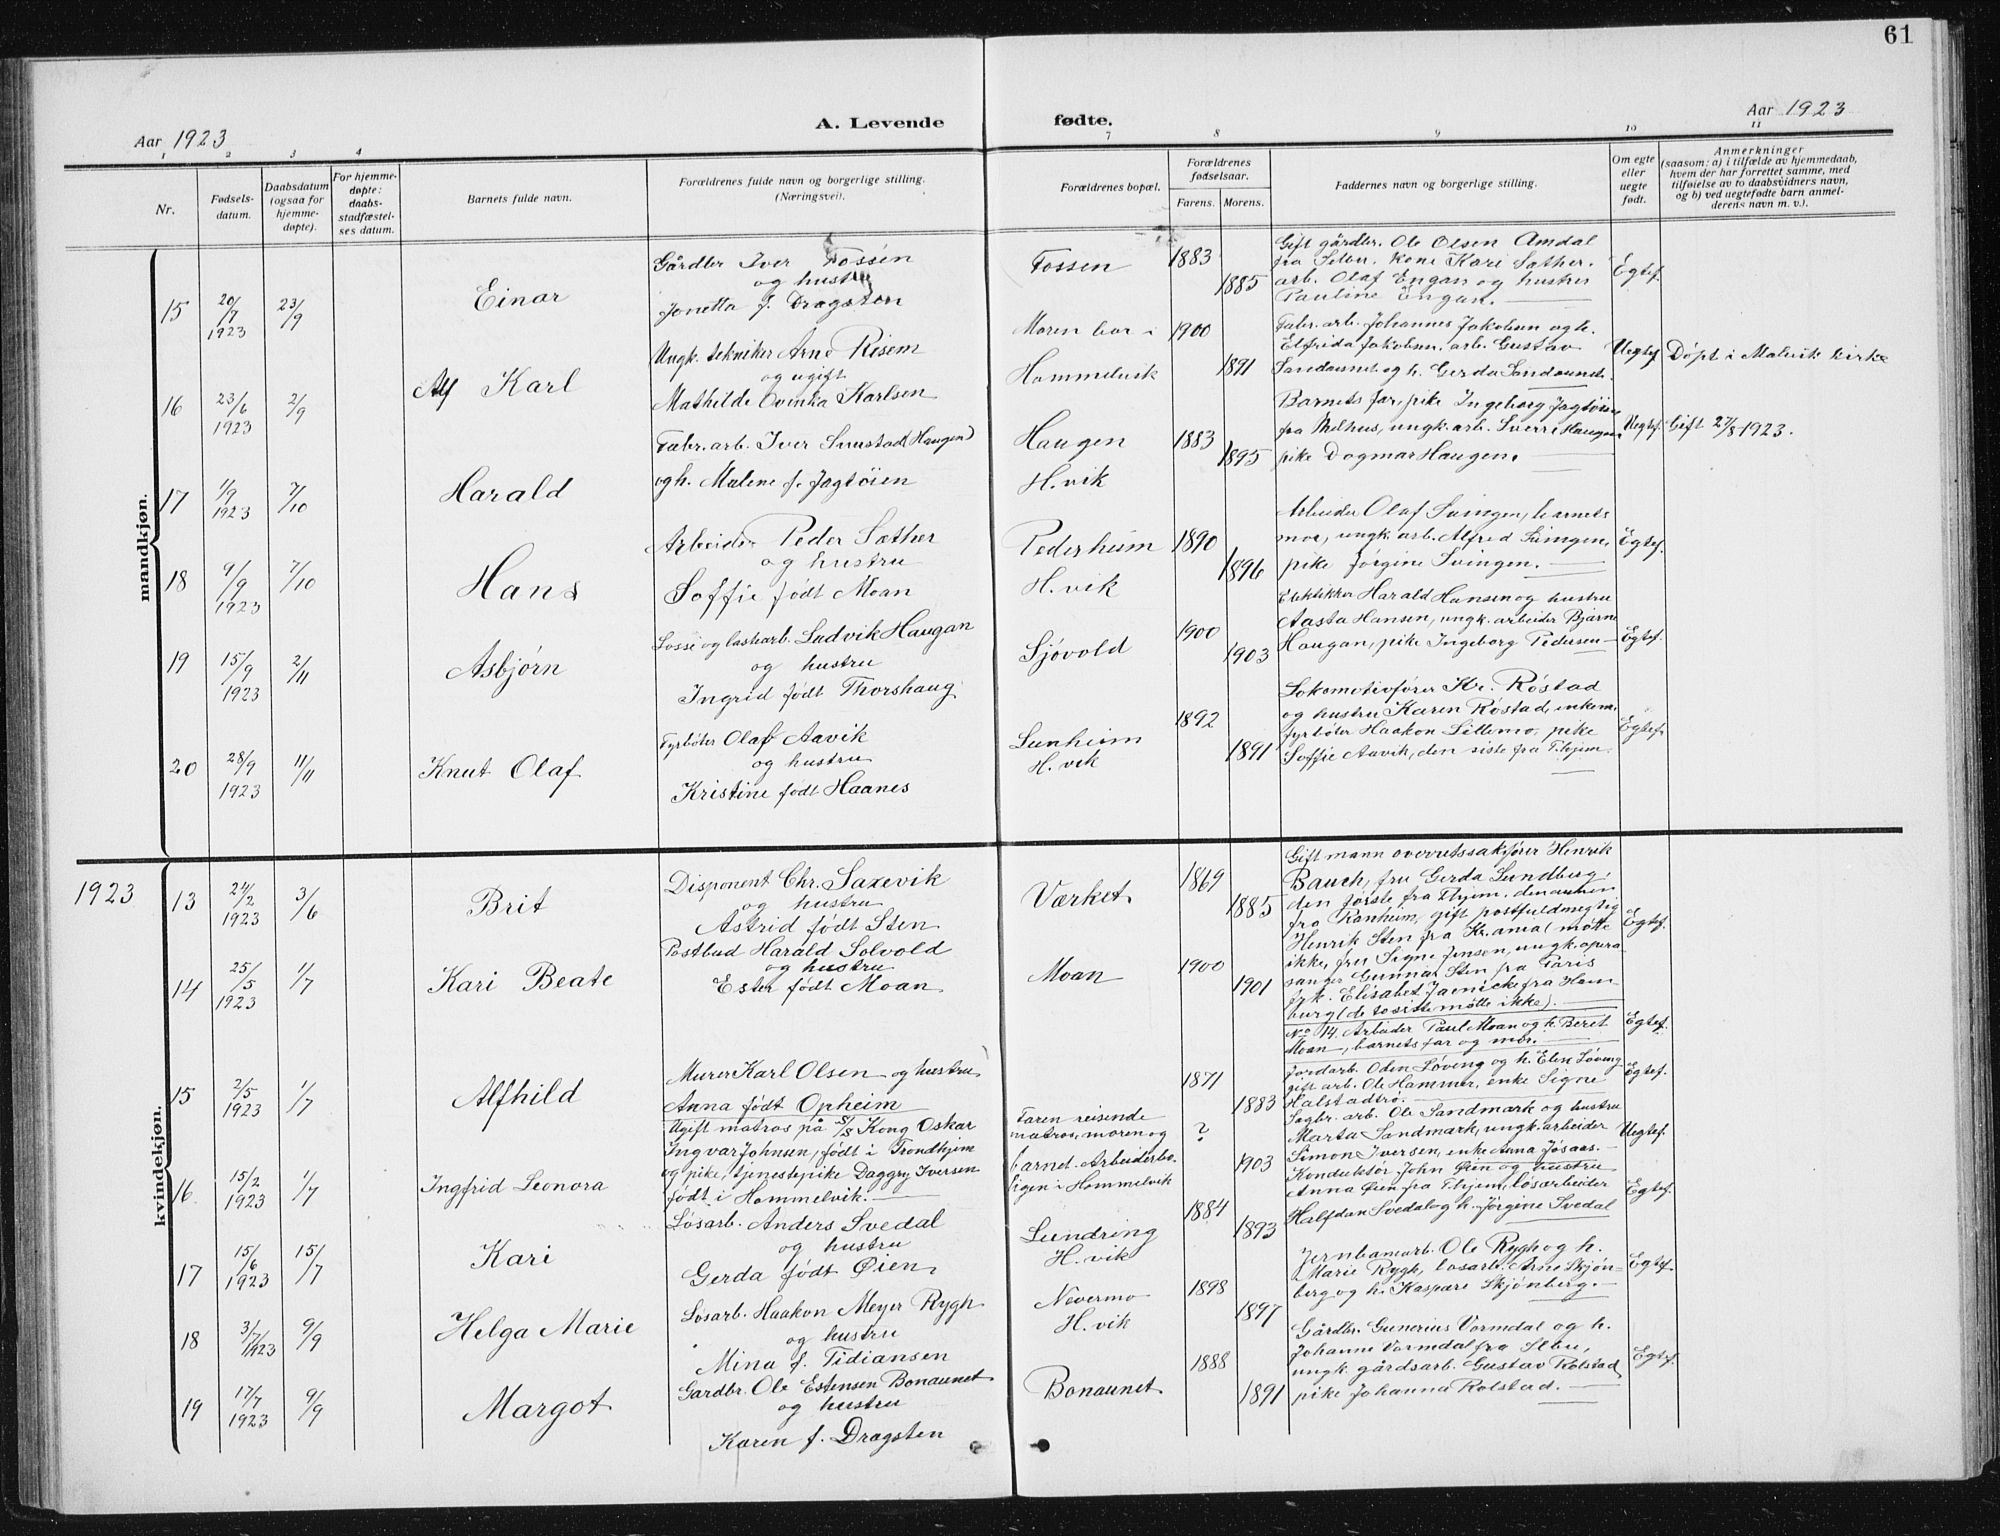 61
Aar 1923
A. Levende fødte.
Aar 1923
1 2 3 4 7 8 9 10 11
Nr.
Fødsels-
datum.
Daabsdatum
(ogsaa for
hjemme-
døpte).
For hjemme-
døpte:
daabs-
stadfæstel-
ses datum.
Barnets fulde navn.
Forældrenes fulde navn og borgerlige stilling.
(Næringsvei).
Forældrenes bopæl.
Forældrenes
fødselsaar.
Farens. Morens.
Faddernes navn og borgerlige stilling.
Om egte
eller
uegte
født.
Anmerkninger
(saasom: a) i tilfælde av hjemmedaab,
hvem der har forrettet samme, med
tilføielse av to daabsvidners navn,
og b) ved uegtefødte barn anmel-
derens navn m. v.).
mandkjøn.
15
20/7
1923
23/9
Einar
Gårdbr Iver Fossen
og hustru
Jonetta f. Dragsten
Fossen
1883
1885
Gift gårdbr. Ole Olsen Amdal
fra Selbu, kone Kari Sæther.
arb. Olaf Engan og hustru
Pauline Engan.
Egtef.
16
23/6
1923
2/9
Alf Karl
Ungk. tekniker Arne Risem
og ugift
Mathilde Ovinka Karlsen
Moren bor i
Hommelvik
1900
1891
Fabr. arb. Johannes Jakobsen og h.
Elfrida Jakobsen. arb. Gustav
Sandaunet og h. Gerda Sandaunet.
Uegtef.
Døpt i Malvik kirke
17
1/9
1923
7/10
Harald
Fabr. arb. Iver Snustad (Haugen)
og h. Malene f. Jagtøien
Haugen
H.vik
1883
1895
Barnets far, pike Ingeborg Jagtøien
fra Melhus, ungk. arb. Sverre Haugen,
pike Dagmar Haugen.
Uegtef.
Gift 27/8 1923.
18
9/9
1923
7/10
Hans
Arbeider Peder Sæther
og hustru
Soffie født Moan
Pederheim
H.vik
1890
1896
Arbeider Olaf Svingen, barnets
mor, ungk. arb. Alfred Svingen,
pike Jørgine Svingen.
Egtef.
19
15/9
1923
2/11
Asbjørn
Losse og lastarb. Ludvik Haugan
og hustru
Ingrid født Thorshaug
Sjøvold
1900
1903
Elektikker Harald Hansen og hustru
Aasta Hansen, ungk. arbeider Bjarne
Haugan, pike Ingeborg Pedersen
Egtef.
20
28/9
1923
11/11
Knut Olaf
Fyrbøter Olaf Aavik
og hustru
Kristine født Haanes
Lunheim
H.vik
1892
1891
Lokomotivfører Kr. Røstad
og hustru Karen Røstad, enkem.
fyrbøter Haakon Sillemo, pike
Soffie Aavik, den siste fra T.hjem.
Egtef.
1923
kvindekjøn.
13
24/2
1923
3/6
Brit
Disponent Chr. Saxevik
og hustru
Astrid født Sten
Værket
1869
1885
Gift mann overretssakfører Henrik
Bauch, fru Gerda Lundberg,
den første fra T.hjem. den anden
fra Ranheim, gift postfuldmegtig
Henrik Sten fra Kr.ania (møtte
ikke, fru Signe Jensen, ungk. opera
sanger Gunnar Sten fra Paris
frk. Elisabet Jaenicke fra Ham
burg (de to siste møtte ikke).
Egtef.
14
25/5
1923
1/7
Kari Beate
Postbud Harald Solvold
og hustru
Ester født Moan
Moan
1900
1901
No 14. Arbeider Paul Moan og h. Beret
Moan, barnets far og mor.
Egtef.
15
2/5
1923
1/7
Alfhild
Murer Karl Olsen og hustru
Anna født Opheim
1871
1883
Jordarb. Oden Løveng og h. Elen Løveng
gift arb. Ole Hammer, enke Signe
Halstadtrø.
Egtef.
16
15/2
1923
1/7
Ingfrid Leonora
Ugift matros på S/S Kong Oskar
Ingvar Johnsen, født i Trondhjem
og pike, tjenestepike Daggry Iversen
født i Hommelvik.
Faren reisende
matros, moren og
barnet. Arbeiderbo.
ligen i Hommelvik
?
1903
Sagbr. arb. Ole Sandmark og hustru
Marta Sandmark, ungk. arbeider
Simon Iversen, enke Anna Jøsaas.
Uegtef.
17
15/6
1923
15/7
Kari
Løsarb. Anders Svedal
og hustru
Gerda født Øien
Lundring
H.vik
1884
1893
Konduktør John Øien og hustru
Anna Øien fra T.hjem, løsarbeider
Halfdan Svedal og h. Jørgine Svedal
Egtef.
18
3/7 1923
9/9
Helga Marie
Løsarb. Haakon Meyer Rygh
og hustru
Mina f. Tidiansen
Nevermo
H.vik
1898
1897
Jernbanarb. Ole Rygh og h.
Marie Rygh, løsarb. Arne Skjøn-
berg og h. Kaspare Skjønberg.
Egtef.
19
17/7
1923
9/9
Margot
Gardbr. Ole Estensen Bonaunet
og hustru
Karen f. Dragsten
Bonaunet
1888
1891
Gårdbr. Gunerius Vormdal og h.
Johanne Vormdal fra Selbu,
ungk. gårdsarb. Gustav Rolstad
pike Johanna Rolstad.
Egtef.